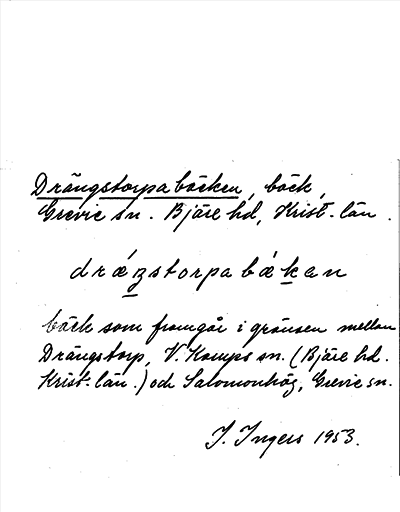 Drängstorpabäcken, bäck,
Grevie sn. Bjäre hd, Krist. län.
drǽŋstorpabǽkan
bäck som framgår i gränsen mellan
Drängstorp, V. Karups sn. (Bjäre hd.
Krist. län.) och Salomonhög, Grevie sn.
I. Ingers 1953.